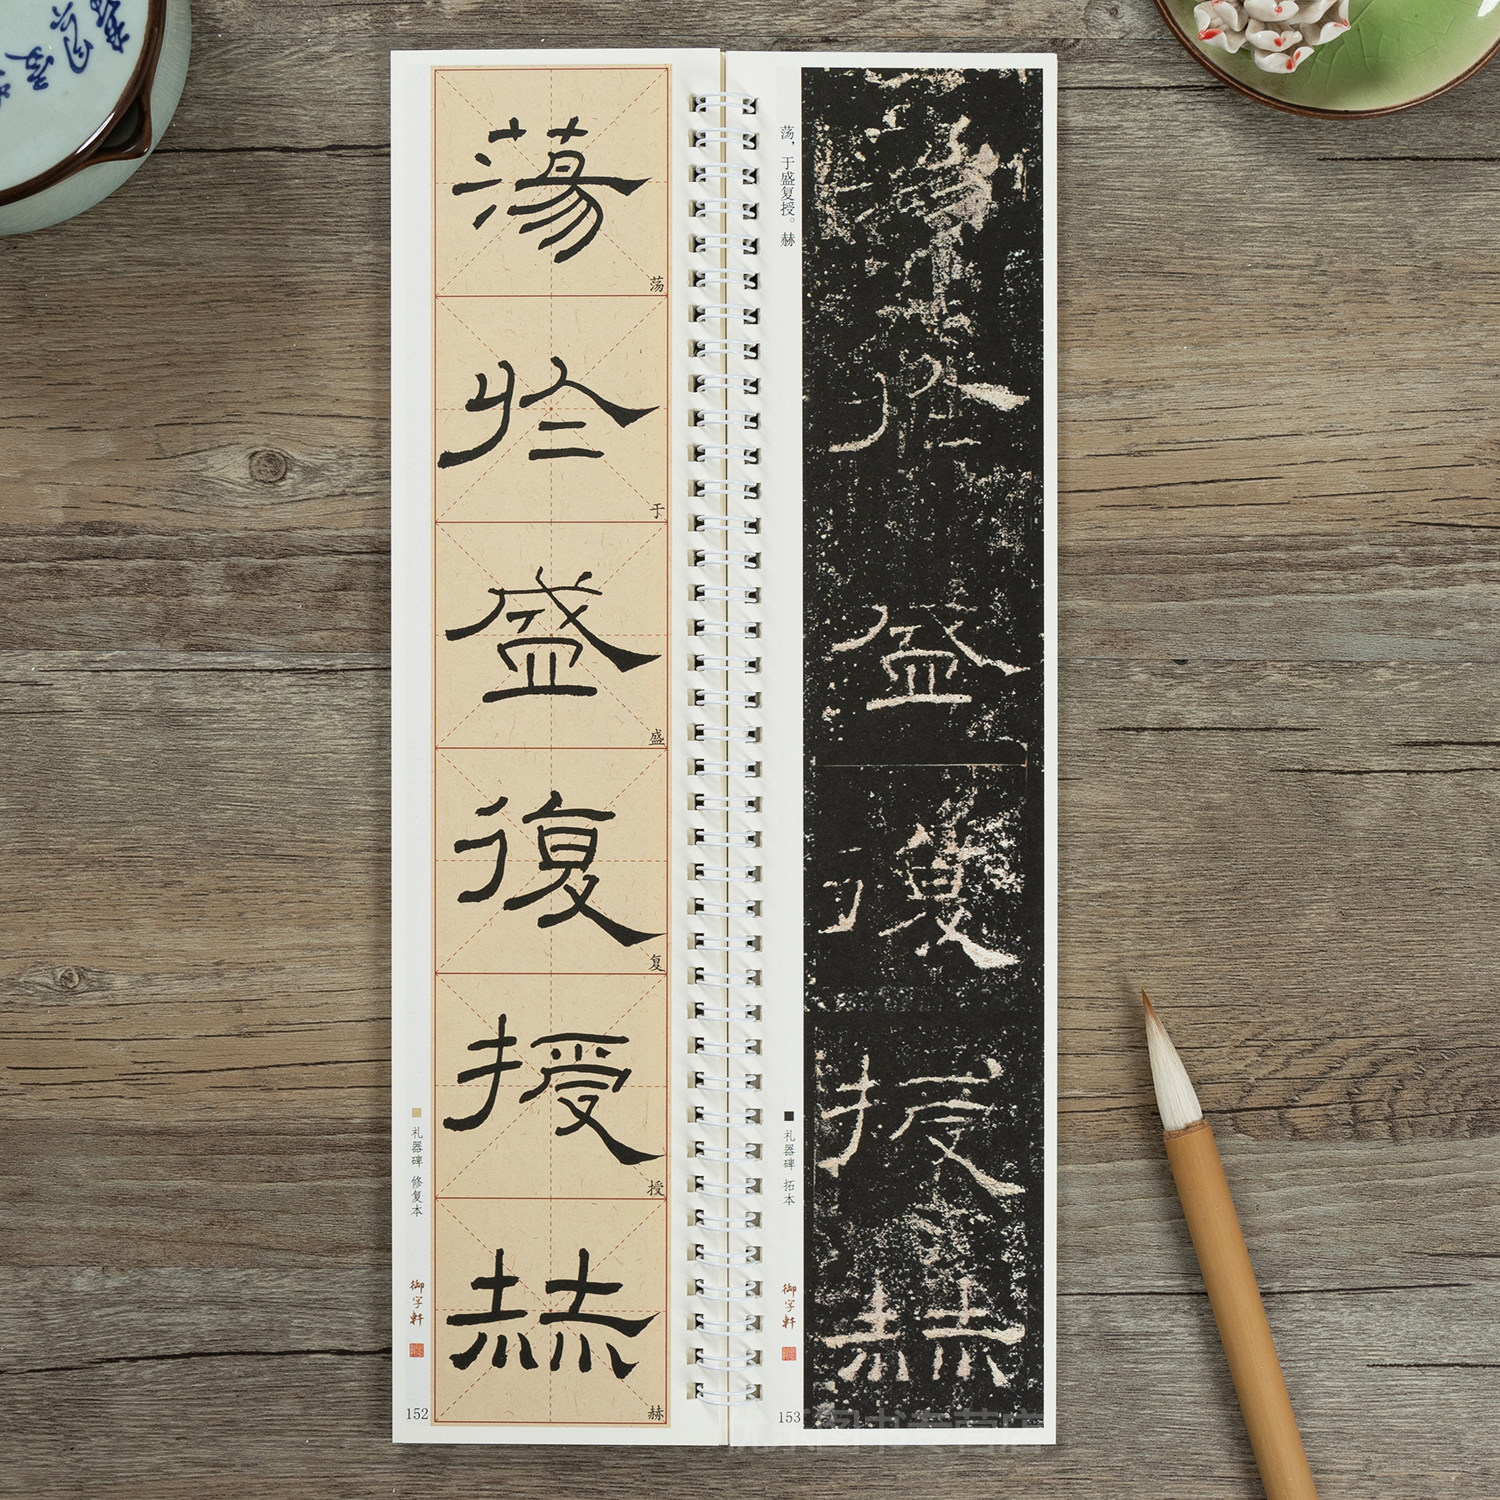 蕩
荡
於
于
盛
盛
復
复
授
授
赫
赫
礼器碑 修复本
御字軒
152
荡，于盛复授。赫
於
盛
復
授
赫
礼器碑 拓本
御字軒
153